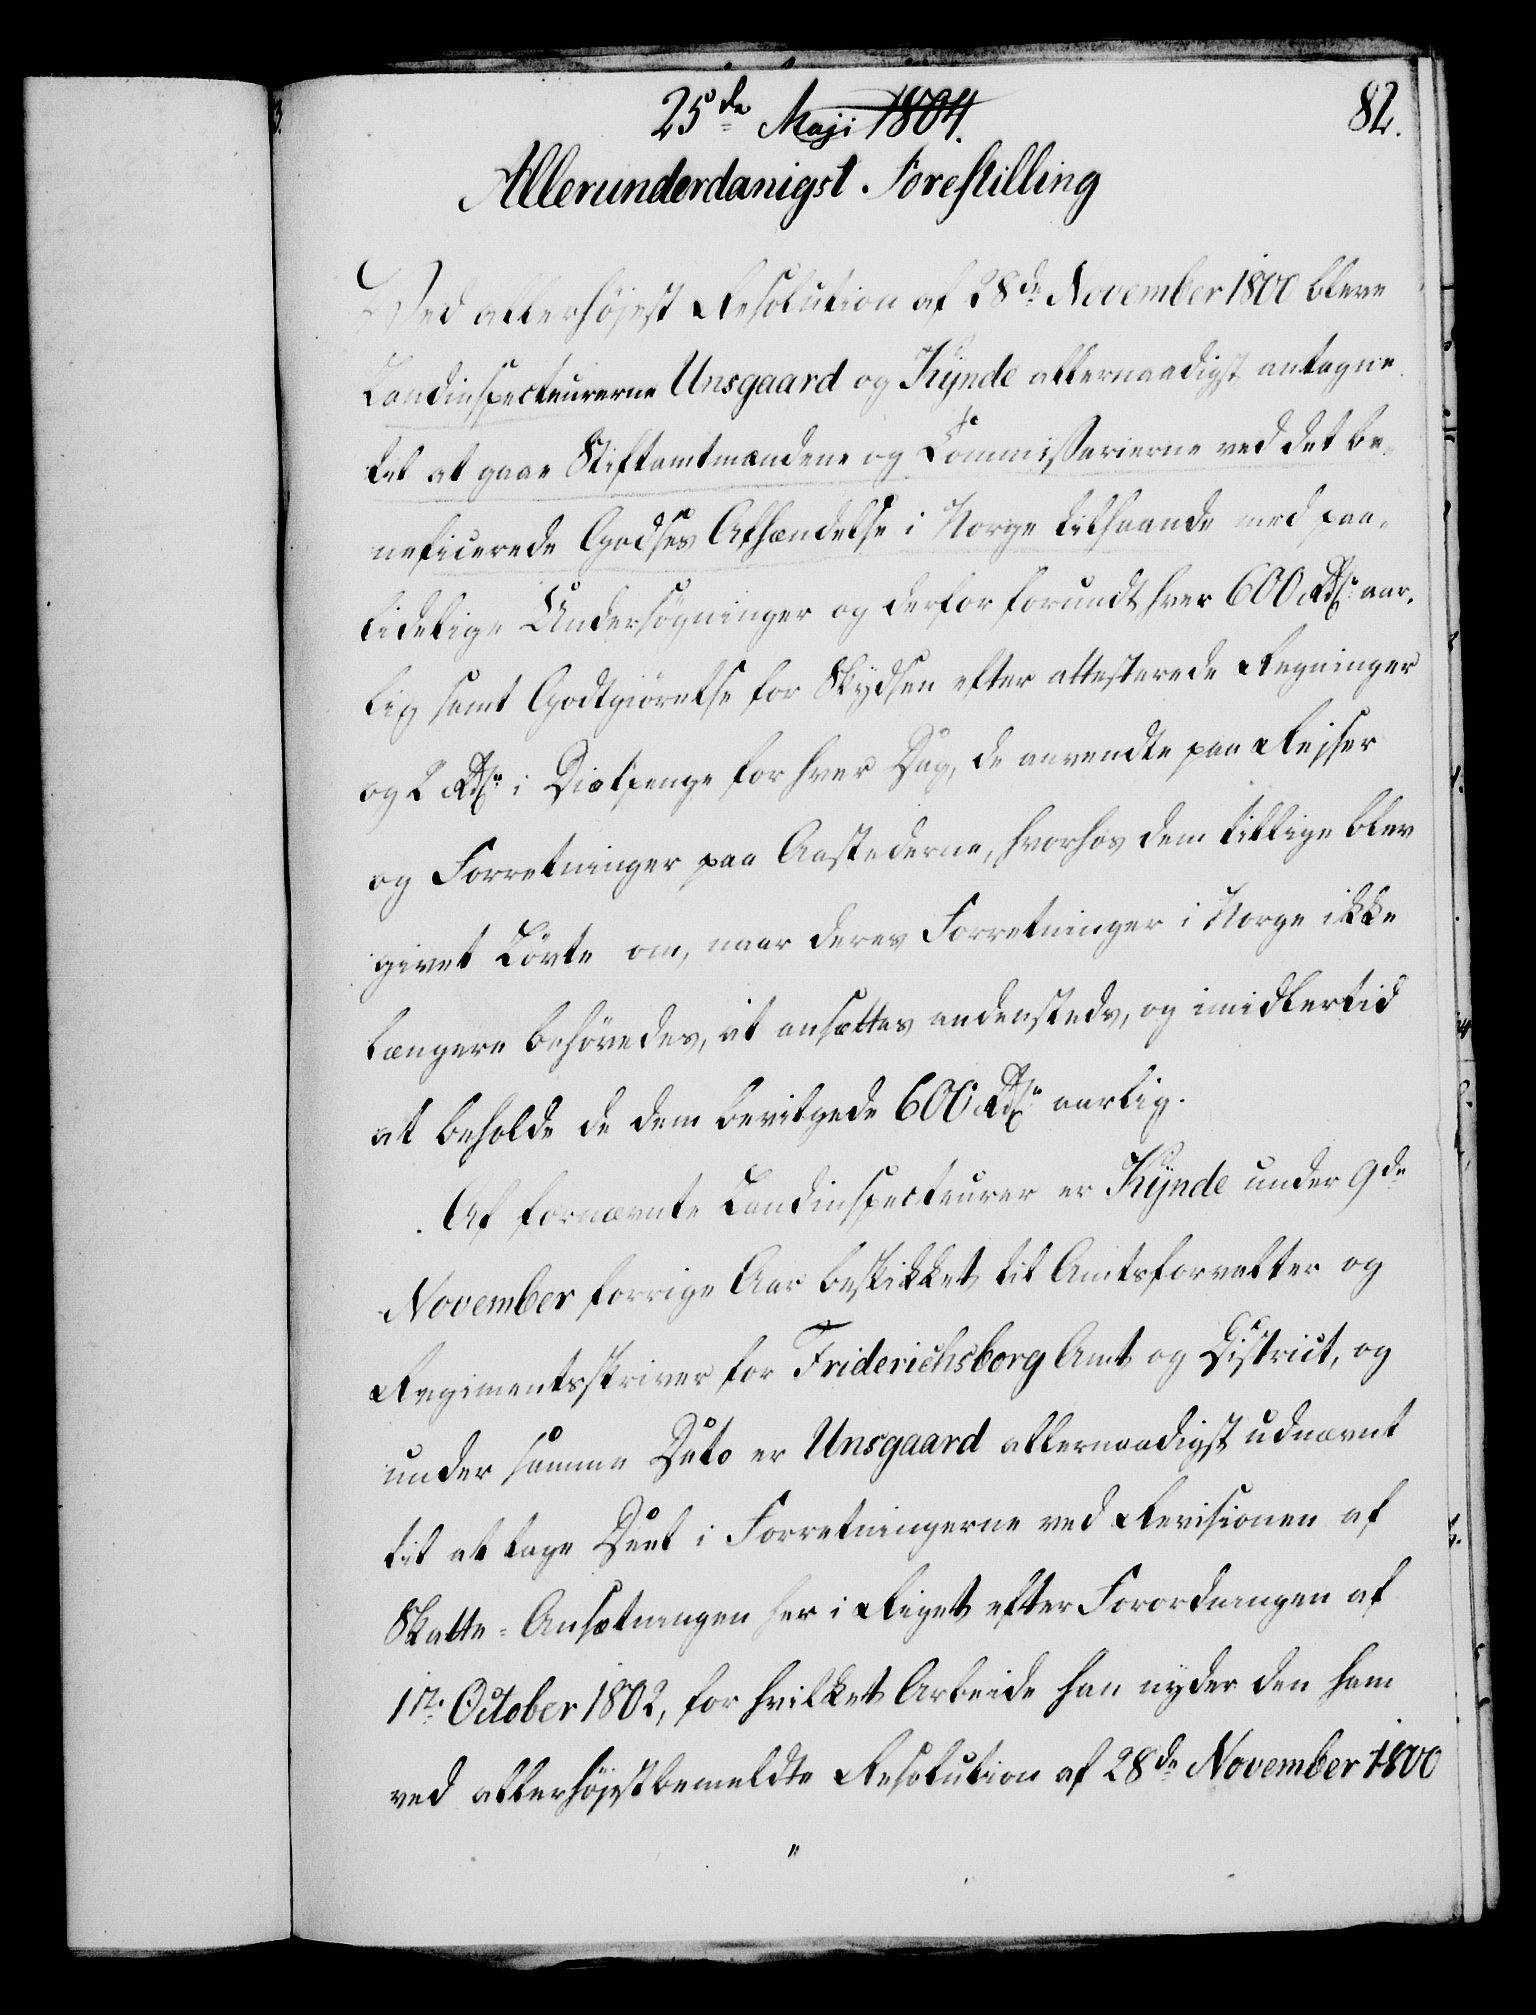 25de Maji 1804.
82.
Allerunderdanigst Forestilling
Ved allerhöjest Resolution af 28de November 1800 bleve
Landinspecteurerne Unsgaard og Kynde allernaadigst antagne
til at gaae Stiftamtmændene og Commissarierne ved det be-
neficerede Godses Afhændelse i Norge tilhaande med paa-
lidelige Undersögninger og derfor forundt hver 600 Rdlr aar-
lig samt Godtgiörelse for Skydsen efter attesterede Regninger
og 2 Rdlr i Diætpenge for hver Dag, de anvendte paa Rejser
og Forretninger paa Aastederne, hvorhos dem tillige blev
givet Lövte om, naar deres Forretninger i Norge ikke
længere behövedes, at ansættes andensteds, og imidlertid
at beholde de dem bevilgede 600 Rdlr aarlig.
Af fornævnte Landinspecteurer er Kynde under 9de
November forrige Aar beskikket til Amtsforvalter og
Regimentsskriver for Friderichsborg Amt og District, og
under samme Dato er Unsgaard allernaadigst udnævnt
til at tage Deel i Forretningerne ved Revisionen af
Skatte-Ansætningen her i Riget efter Forordningen af
1te October 1802, for hvilket Arbeide han nyder den ham
ved allerhöjstbemeldte Resolution af 28de November 1800